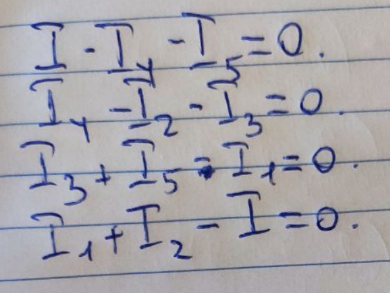 I - I₄ - I₅ = 0.
I₄ - I₂ - I₃ = 0.
I₃ + I₅ - I₁ = 0.
I₁ + I₂ - I = 0.